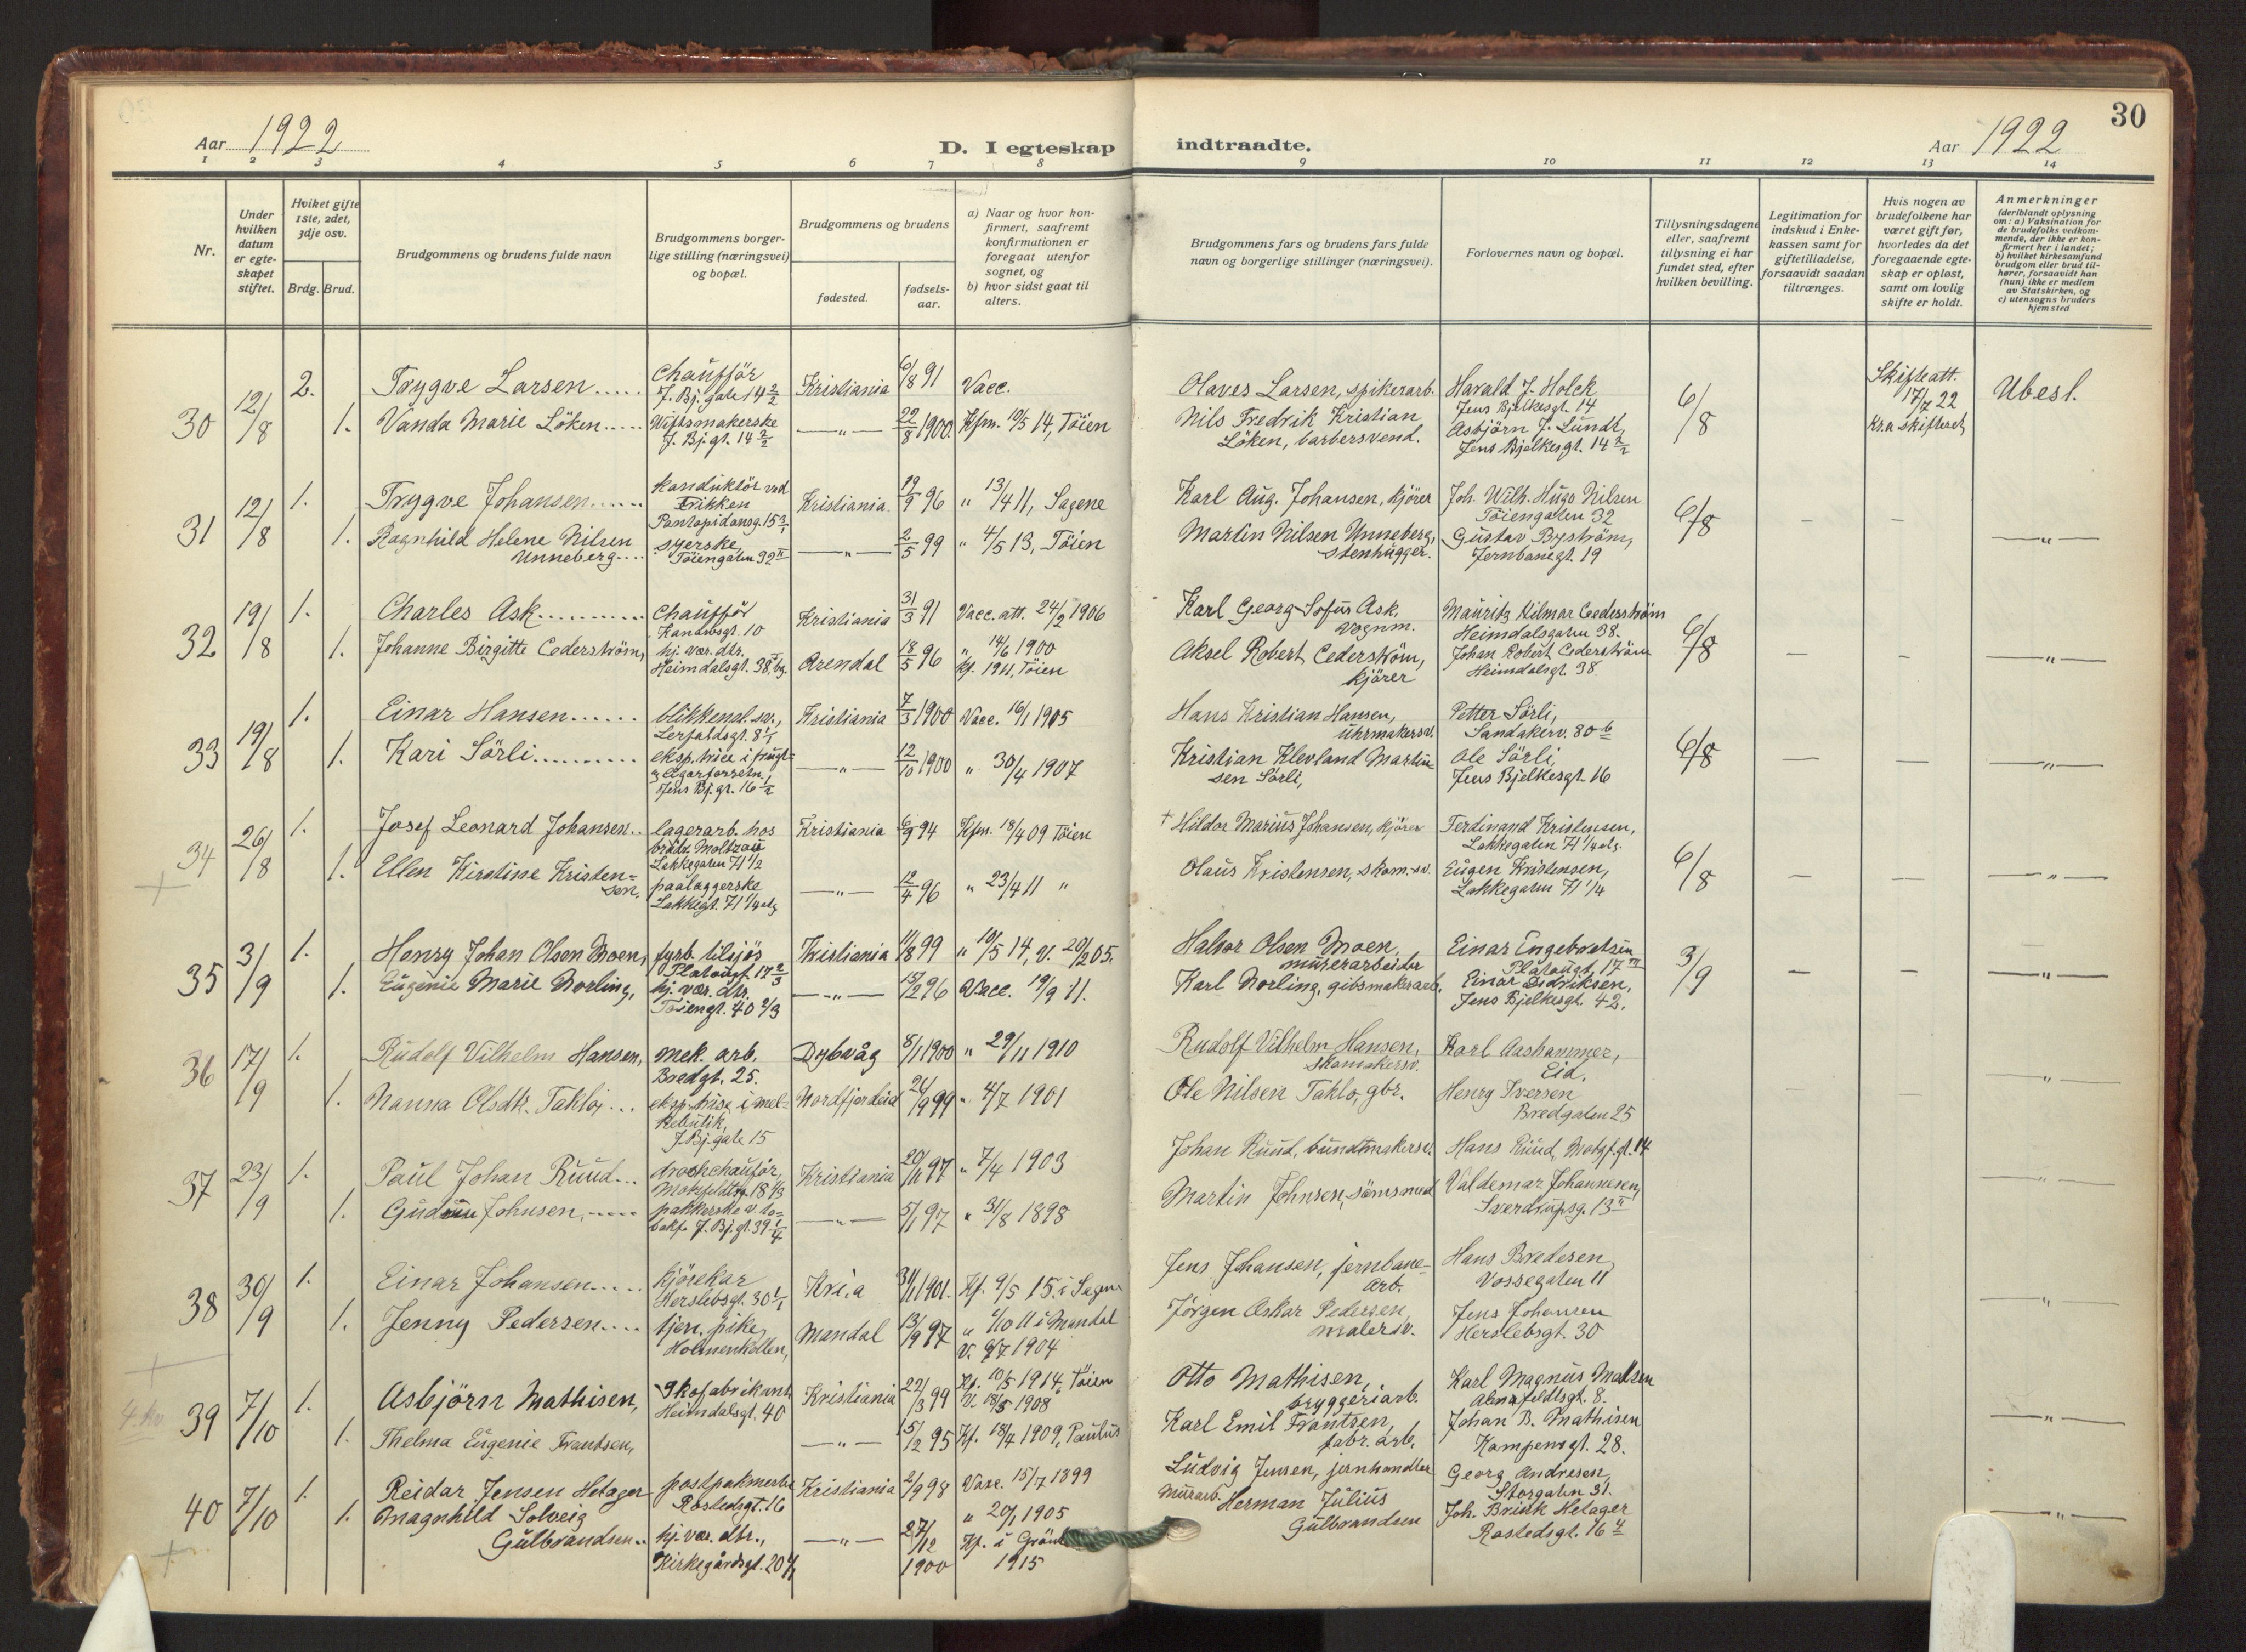 30
Aar 1922
D. I egteskap
indtraadte.
Aar 1922
1 2 3 4 5 6 7 8 9 10 11 12 13 14
Nr.
Under hvilken datum er egteskapet stiftet.
Hviket gifte 1ste, 2det, 3dje osv.
Brdg. Brud.
Brudgommens og brudens fulde navn
Brudgommens borgerlige stilling (næringsvei) og bopæl.
Brudgommens og brudens
fødested.
fødselsaar.
a) Naar og hvor konfirmert, saafremt konfirmationen er foregaat utenfor sognet, og
b) hvor sidst gaat til alters.
Brudgommens fars og brudens fars fulde navn og borgerlige stillinger (næringsvei).
Forlovernes navn og bopæl.
Tillysningsdagene eller, saafremt tillysning ei har fundet sted, efter hvilken bevilling.
Legitimation for indskud i Enkekassen samt for giftetilladelse, forsaavidt saadan tiltrænges.
Hvis nogen av brudefolkene har været gift før, hvorledes da det foregaaende egteskap er opløst, samt om lovlig skifte er holdt.
Anmerkninger
(deriblandt oplysning om: a) Vaksination for de brudefolks vedkommende, der ikke er konfirmert her i landet; b) hvilket kirkesamfund brudgom eller brud tilhører, forsaavidt han (hun) ikke er medlem av Statskirken, og c) utensogns bruders hjemsted
30 12/8 2. Trygve Larsen..... Chaufför J. Bj. gate 14 2/2 Kristiania 6/8 91 Vacc. Olaves Larsen, spikerarb. Harald J. Holck Jens Bjelkesgt. 14 6/8 Skifteatt. 17/7 22 Kr.a skifteret Ubesl.
1. Vanda Marie Löken..... J. Bj. gt. 14 2/2 —"— 22/8 1900. Kfm. 10/5 14, Töien Nils Fredrik Kristian Löken, barbersvend. Asbjörn J. Lundt, Jens Bjelkesgt. 14 2/2
31 12/8 1. Trygve Johansen...... Konduktör ved Trikken Pontopidansg. 15 Kristiania. 19/9 96 " 13/4 11, Sagene Karl Aug. Johansen, kjörer Joh. Wilh. Hugo Nilsen Töiengaten 32 6/8 – – —"—
1. Ragnhild Helene Nilsen Unneberg.... syerske, Töiengaten 32 II —"— 2/5 99 " 4/5 13, Töien Martin Nilsen Unneberg, stenhugger. Gustav Byström, Jernbanegt. 19
32 19/8 1. Charles Ask.......... Chaufför gt. 10 Kristiania 31/3 91 Vacc. att. 24/2 1906 Karl Georg Sofus Ask. Vognm. Mauritz Hilmar Cederström Heimdalsgaten 38. 6/8 – – —"—
1. Johanne Birgitte Cederström, hj. vær. dtr. Heimdalsgt. 38 Arendal 18/5 96 " 14/6 1900 kf. 1911, Töien Aksel Robert Cederström, kjörer Johan Robert Cederström Heimdalsgt. 38.
33 19/8 1. Einar Hansen...... blikkensl. sv., Kristiania 7/3 1900 Vacc. 16/1 1905 Hans Kristian Hansen, uhrmakersv. Petter Sörli, Sandakerv. 80 b 6/8 – – —"—
1. Kari Sörli.......... eksp. trice i frugt- & cigarforretn., Jens Bj. gt. 16 1/2 —"— 12/10 1900 " 30/4 1907 Kristian Klevland Martinsen Sörli, Ole Sörli, Jens Bjelkesgt. 16
34 26/8 1. Josef Leonard Johansen.. lagerarb. hos brödr. Moltzau Lakkegaten 71 1/2 Kristiania 6/9 94 Kfm. 18/4 09 Töien + Hildor Marius Johansen, kjörer Ferdinand Kristensen, Lakkegaten 71 1/4 6/8 – – —"—
+ 1. Ellen Kirstine Kristensen, paalæggerske Lakkegt. 71 1/4 —"— 12/4 96 " 23/4 11 " Olaus Kristensen, skom.sv. Eugen Kristensen, Lakkegaten 71 1/4
35 3/9 1. Henry Johan Olsen Moen, fyrb. tilsjös Platougt. 17 2/3 Kristiania 11/8 99 " 10/5 14, v. 20/2 05. Halvor Olsen Moen, murerarbeider Einar Engebretsen Platougt. 17 III 3/9 – – —"—
1. Eugenie Marie Norling, hj. vær. dtr. Töiengt. 40 2/3 —"— 15/2 96 Vacc. 19/9 11. Karl Norling, gibsmakerarb. Einar Didriksen, Jens Bjelkesgt. 42.
36 17/9 1. Rudolf Vilhelm Hansen, mek. arb. Bredgt. 25. Dybvåg 5/1 1900 " 29/11 1910 Rudolf Vilhelm Hansen, skomakersv. Karl Aashammer, Eid. – —"—
1. Nanna Olsdtr. Taklo, ... eksp.trise i melkebutik, J. Bj. gate 15 Nordfjordeid 24/9 99 " 4/7 1901 Ole Nilsen Taklo, gbr. Henry Iversen Bredgaten 25
37 23/9 1. Paul Johan Ruud... droschchauför, Motzfeldtsg. 18 Kristiania 20/11 97 " 7/4 1903 Johan Ruud, buntmakersv. Hans Ruud, Motzf. gt. 14 —"—
1. Gudrun Johnsen, ..... pakkerske v. tobakf. J. Bj. gt. 39 1/4 —"— 5/1 97 " 31/8 1898 Martin Johnsen, sömsmed Valdemar Johannesen, Sverdrupsg. 13 II
38 30/9 1. Einar Johansen..... kjörekar Herslebsgt. 30 1/1 Kr.i.a 31/1 1901. Kf. 9/5 15. i Sagene Jens Johansen, jernbanearb. Hans Bredesen, Vossegaten 11 —"—
1. Jenny Pedersen.... tjen. pike, Holmenkollen, Mandal 13/9 97 " 1/10 11 i Mandal V. 9/7 1904 Jörgen Oskar Pedersen, malersv. Jens Johansen Herslebsgt. 30
+
39 7/10 1. Asbjörn Mathisen, Skofabrikant Heimdalsgt. 40 Kristiania 22/3 99 Kf. 10/5 1914, Töien V. 18/5 1908 Otto Mathisen, bryggeriarb. Karl Magnus Madsen 8. —"—
1. Thelma Eugenie Frantsen, —"— 15/2 95 Kf. 18/4 1909, Paulus Karl Emil Frantsen, fabr. arb. Johan B. Mathisen Kampensgt. 28.
40 7/10 1. Reidar Jensen Hetager Rostedsgt. 16 Kristiania 2/9 98 Vacc. 15/7 1899 Ludvig Jensen, jernhandler Georg Andresen, Storgaten 31. —"—
+ 1. Magnhild Solveig Gulbrandsen.. hj. vær. dtr., Kirkegårdsgt. 20 —"— 27/12 1900 " 20/1 1905 Kf. i 1915 Murarb. Herman Julius Gulbrandsen Joh. Brink Hetager Rostedsgt. 16